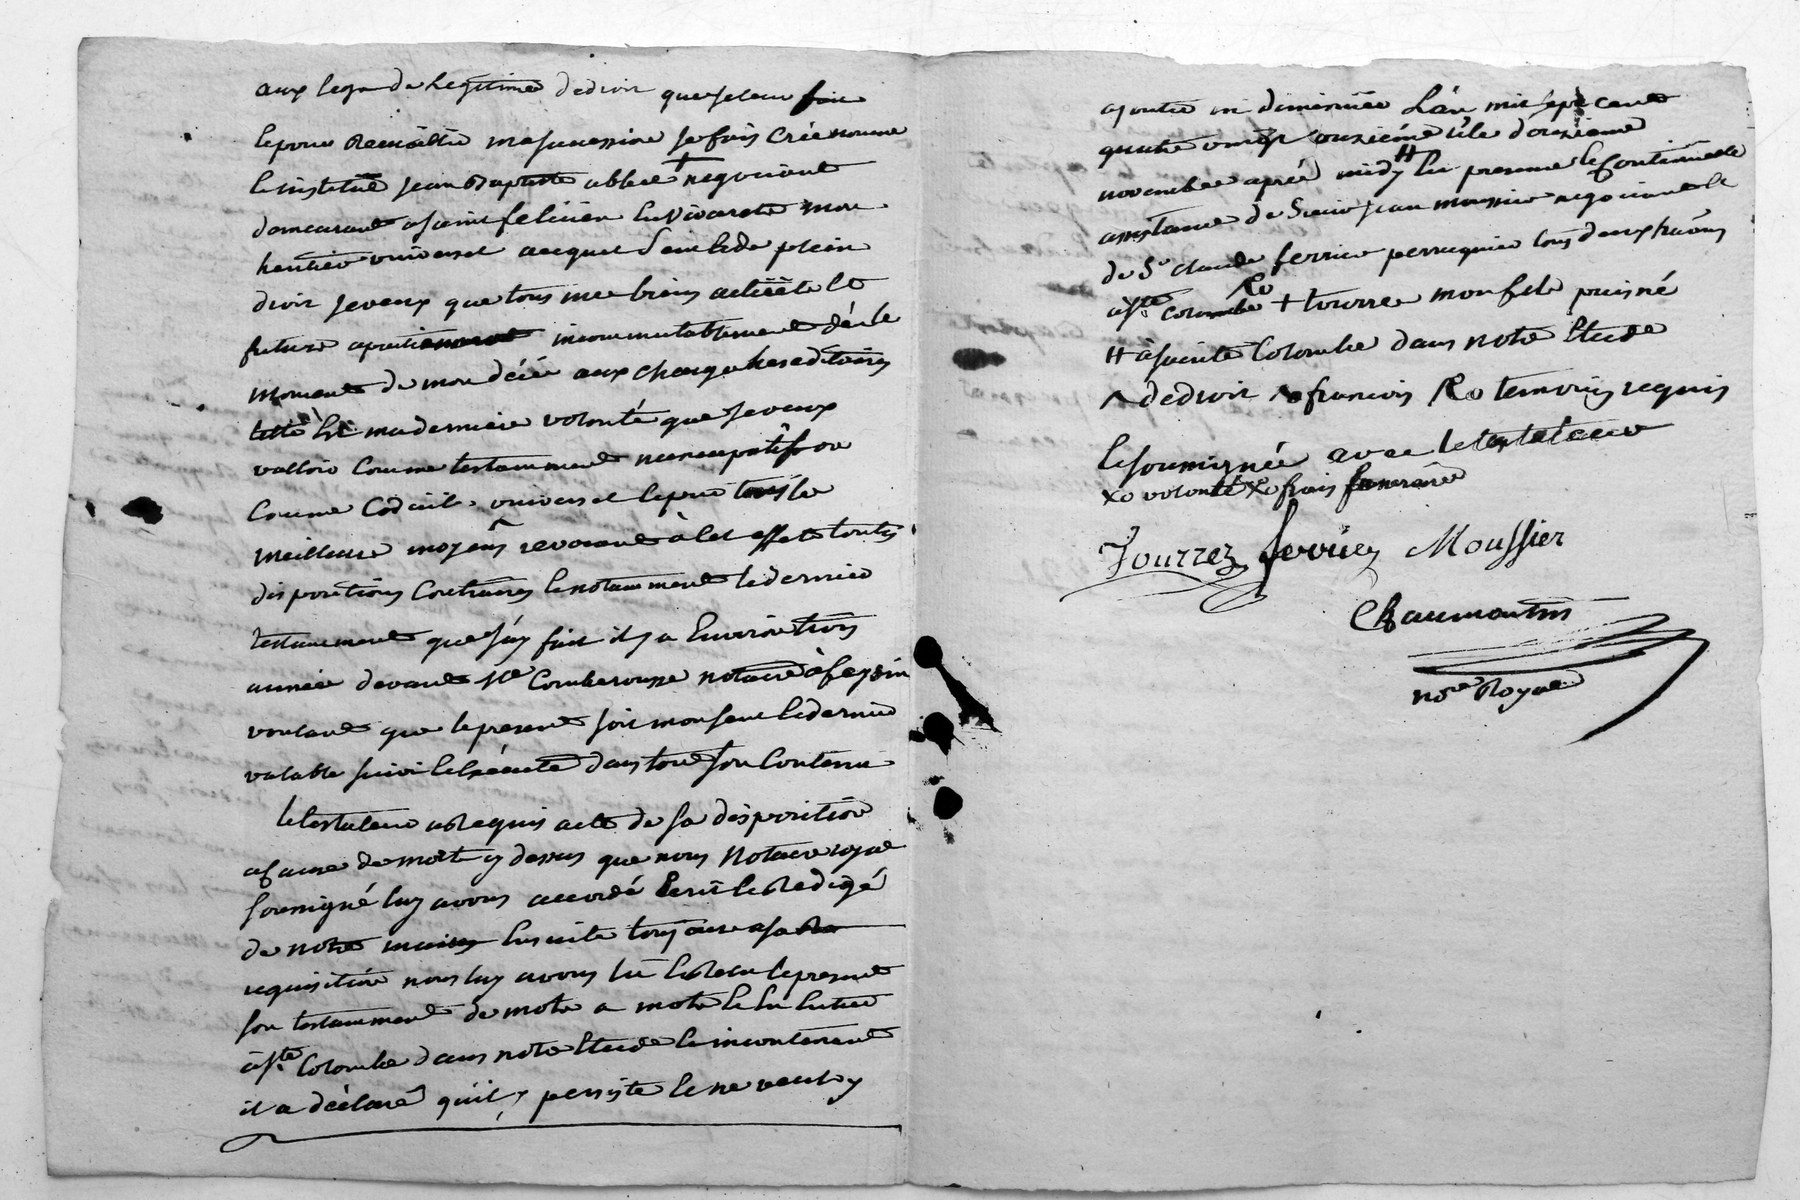 aux legs de legitime de droit que je leur fait
et pour recueillir ma succession je fais crée nomme
et institue jean Baptiste abbee + negociant
demeurant a saint felicien en vivarets mon
heritier universel auquel de plein
droit je veux que tous mes biens actuels et
future incommutablement dès le
moment de mon décès aux charges hereditaires
telle est ma derniere volonté que je veux
valloir comme testamment nuncupatif ou
comme Codicil universel et par tous les
meilleurs moyens revocant à cet effet toutes
dispositions Contraires et notamment le dernier
testamment que j'ay fait il y a Environ trois
année devant Me Comberousse notaire à feyzin
voulant que le present soit mon seul et dernier
valable suivi et éxécuté dans tout son Contenu
le testateur a requis acte de sa disposition
a cause de mort cy dessus que nous Notaire royal
soussigné luy avons accordé Ecrit et Redigé
de notre main Ensuite toujours a sa
requisition nous luy avons lû et Relu le present
son testamment de mots a mots et lu Entier
à Ste Colombe dans notre Etude et incontinent
il a déclaré qu'il y persiste et ne veut y
ajouter ni diminuer L'an mil sept cent
quatre vingt onziéme et le douzieme
novembre après midy # En presence et Continuelle
assistance de Sieur jean moussier negociant et
de Sr claude ferrier perruquier tous deux
a Ste Colombe Ro + tourre mon fils puisné
# à sainte Colombe dans notre Etude
de droit francois Ro temoins requis
et soussignés avec le testateur
xo volonté xo frais funeraire
Tourrez ferrier Moussier
Chaumartin
nore Royal